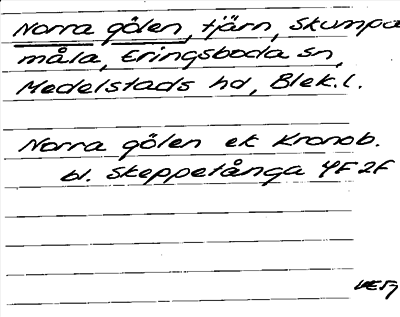 Norra gölen, tjärn, Skumpa
måla, Eringsboda sn,
Medelstads hd, Blek.l.
Norra gölen ek Kronob.
bl. Skeppetånga 4F 2F